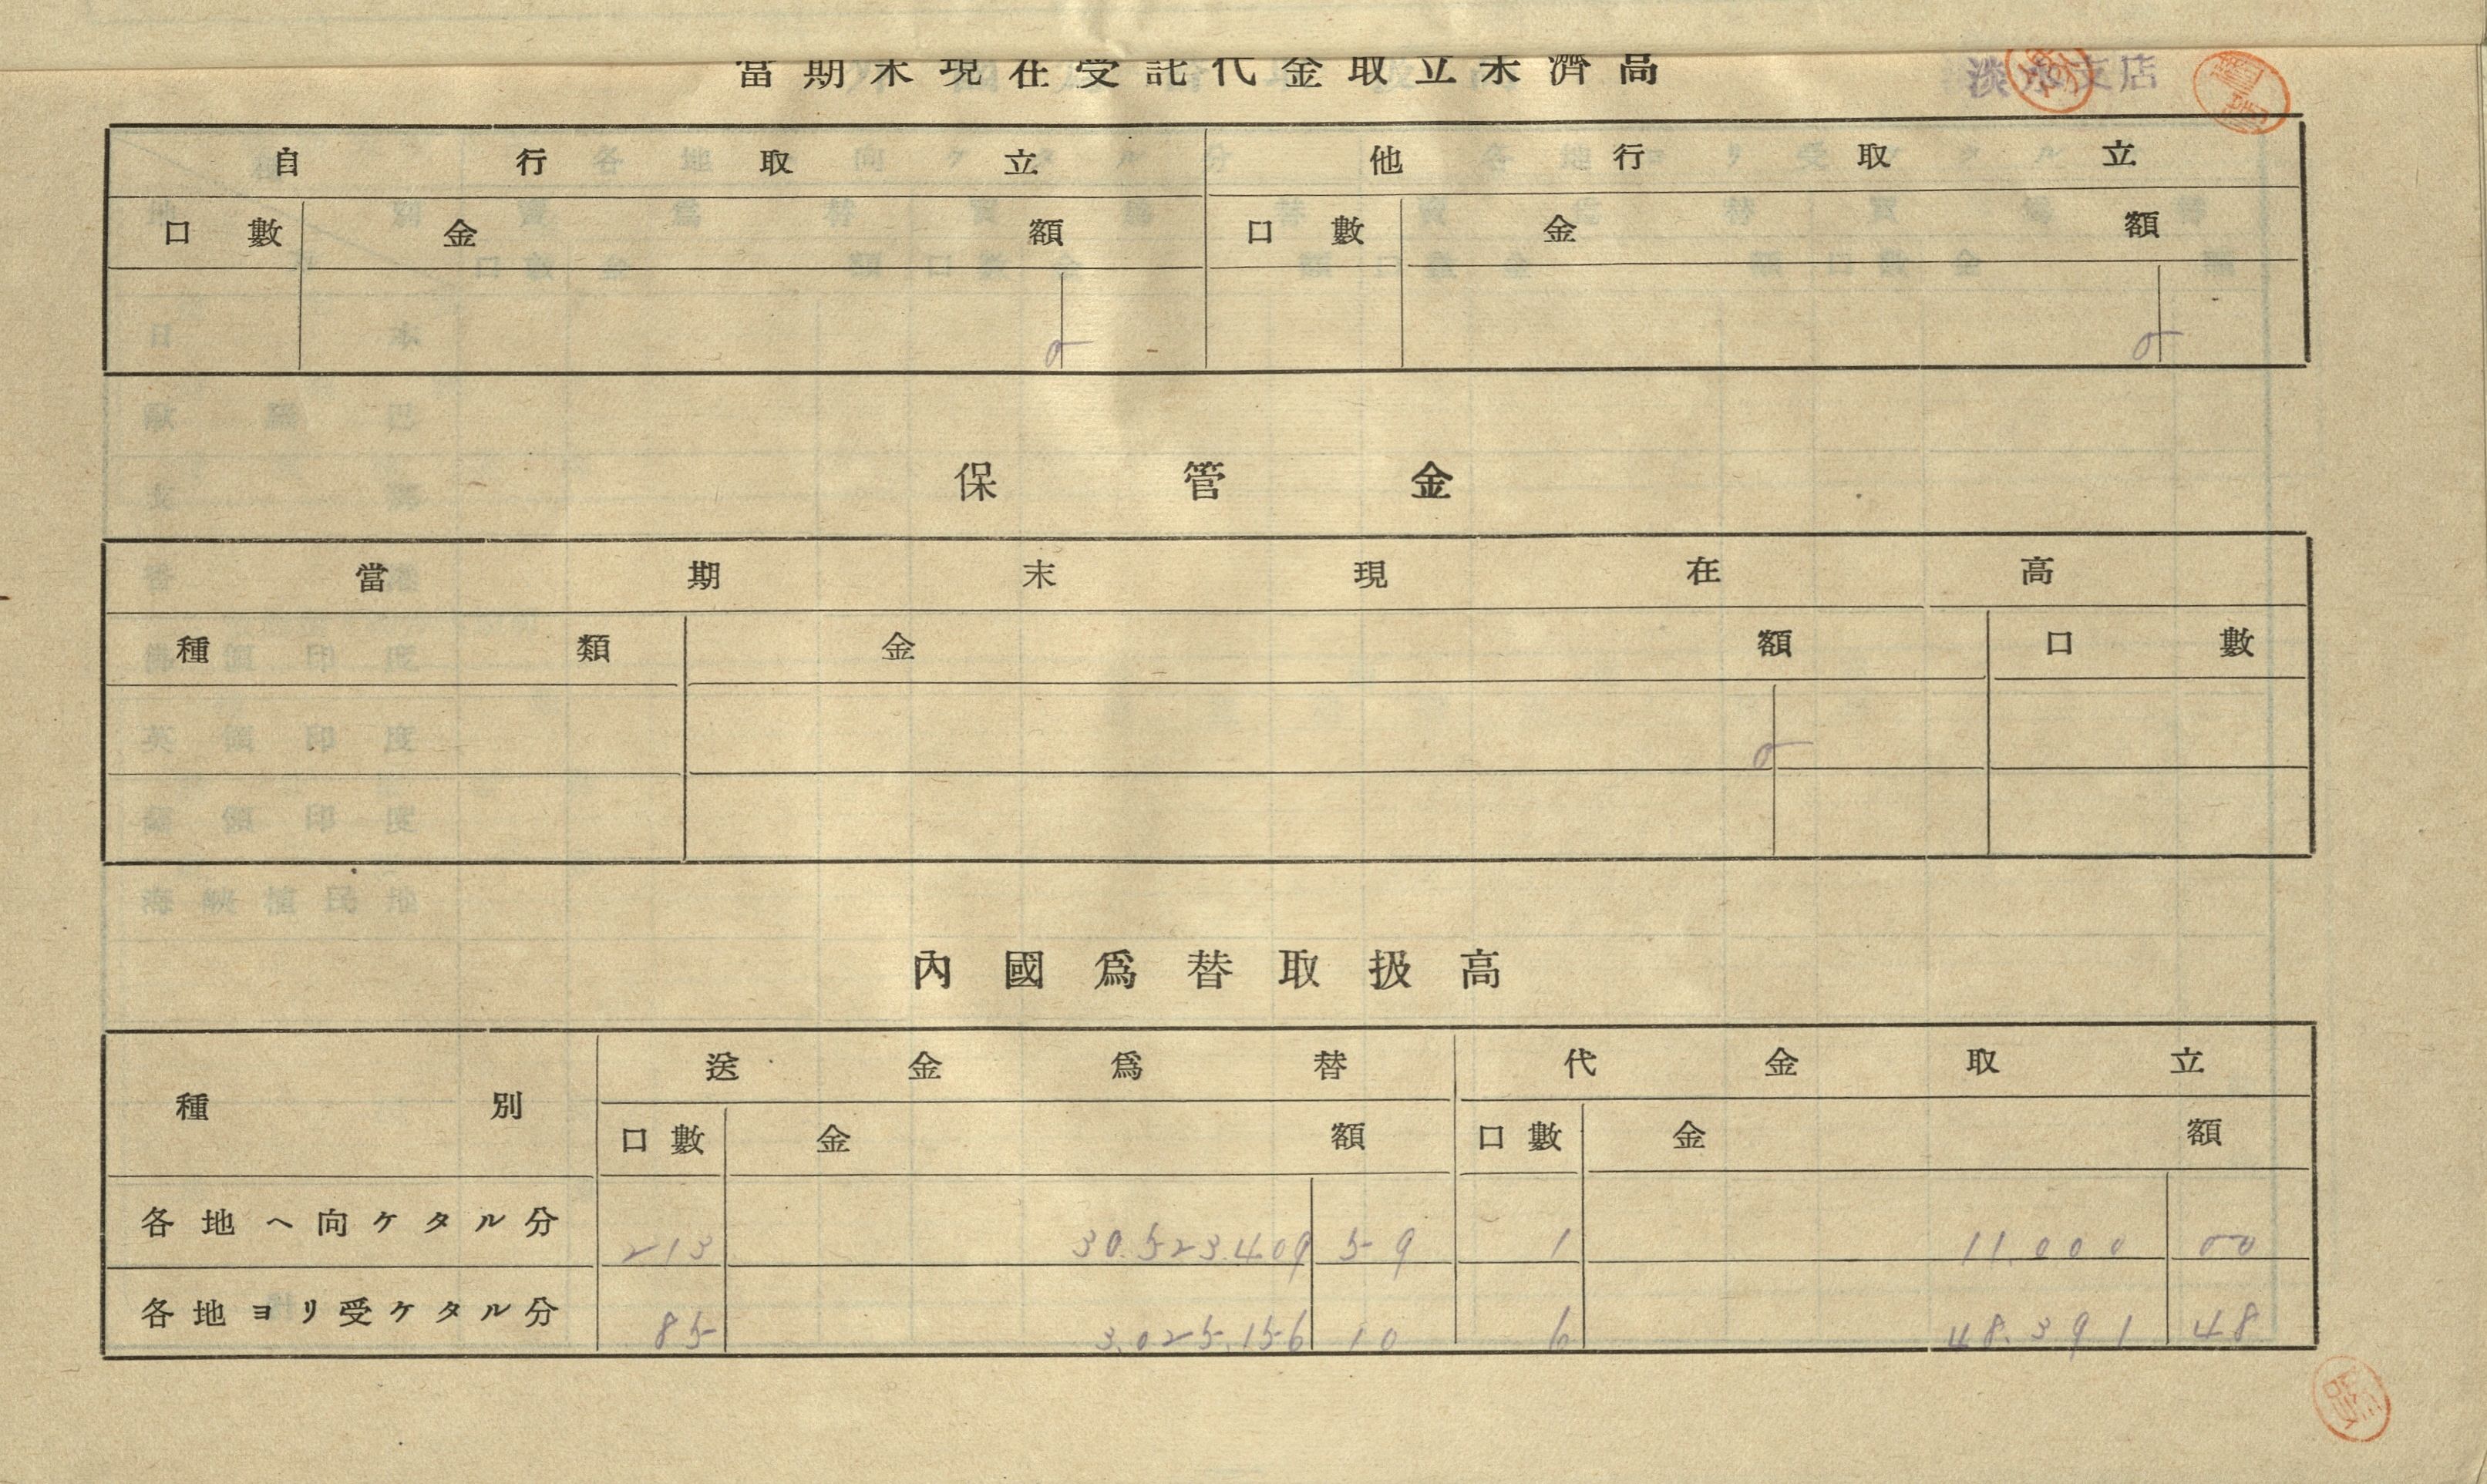 當期末現在受託代金取立未濟高
淡水支店
自行取立 他行取立
口數 金額 口數 金額
0 - 0 -
保管金
當期末現在高
種類 金額 口數
0
內國爲替取扱高
種別 送金爲替 代金取立
口數 金額 口數 金額
各地ヘ向ケタル分 213 30.523.409 59 1 11.000 00
各地ヨリ受ケタル分 85 3.025.156 10 6 48.391 48